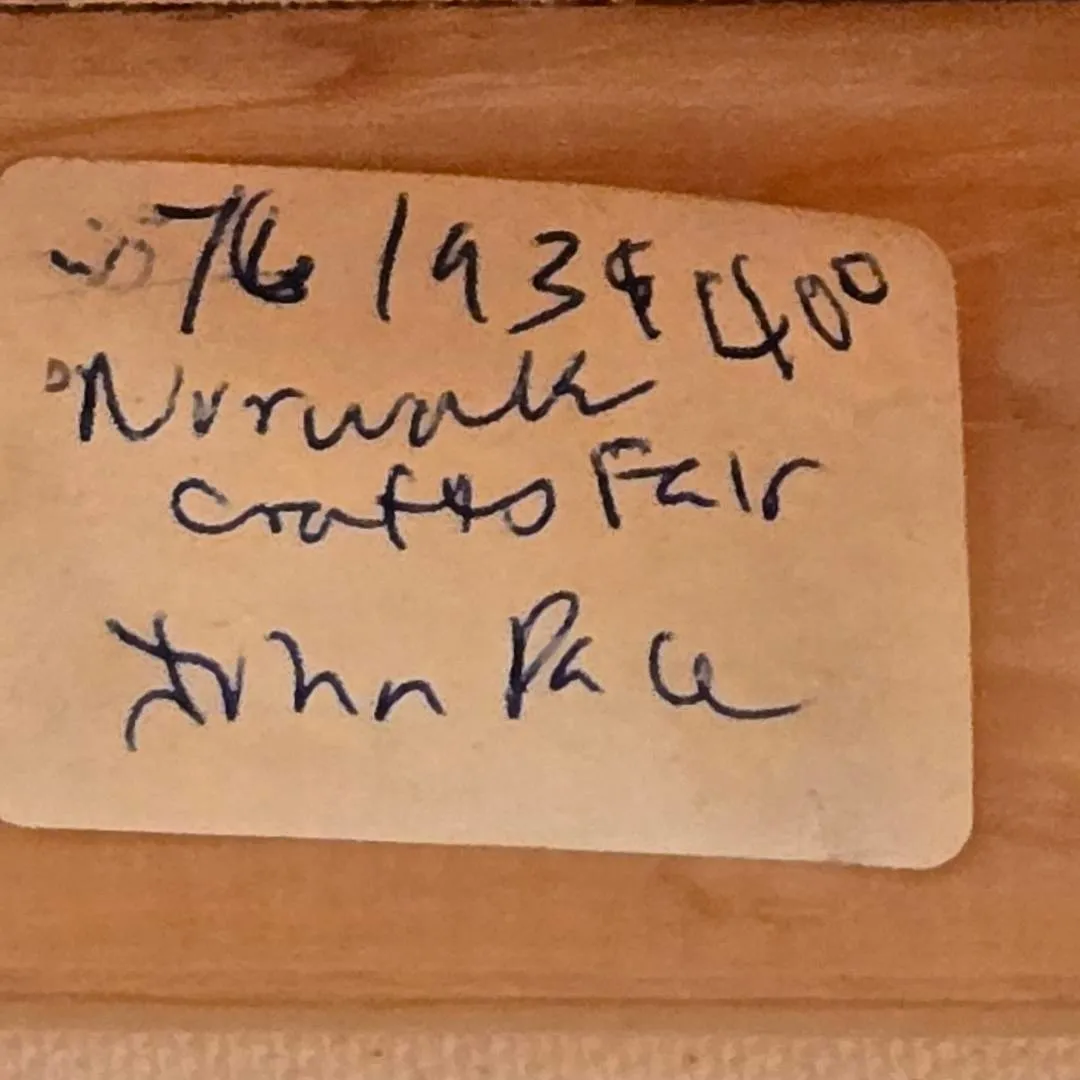 76 193 $400
Norwalk
crafts Fair
John Pace